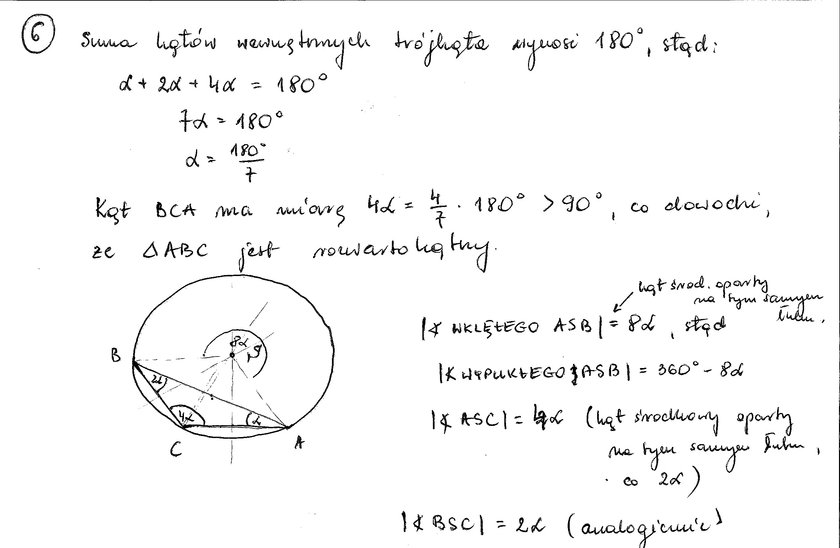 6 Suma kątów wewnętrznych trójkąta wynosi 180°, stąd:
α + 2α + 4α = 180°
7α = 180°
α = 180°/7
Kąt BCA ma miarę 4α = 4/7 · 180° > 90°, co dowodzi,
że △ABC jest rozwartokątny.
kąt środ. oparty
na tym samym
łuku.
|∢ WKLĘSŁEGO ASB| = 8α, stąd
|∢ WYPUKŁEGO ASB| = 360° - 8α
|∢ ASC| = 4α (kąt środkowy oparty
na tym samym łuku,
co 2α)
|∢ BSC| = 2α (analogicznie)
8α
S
B
2α
4α
α
C
A